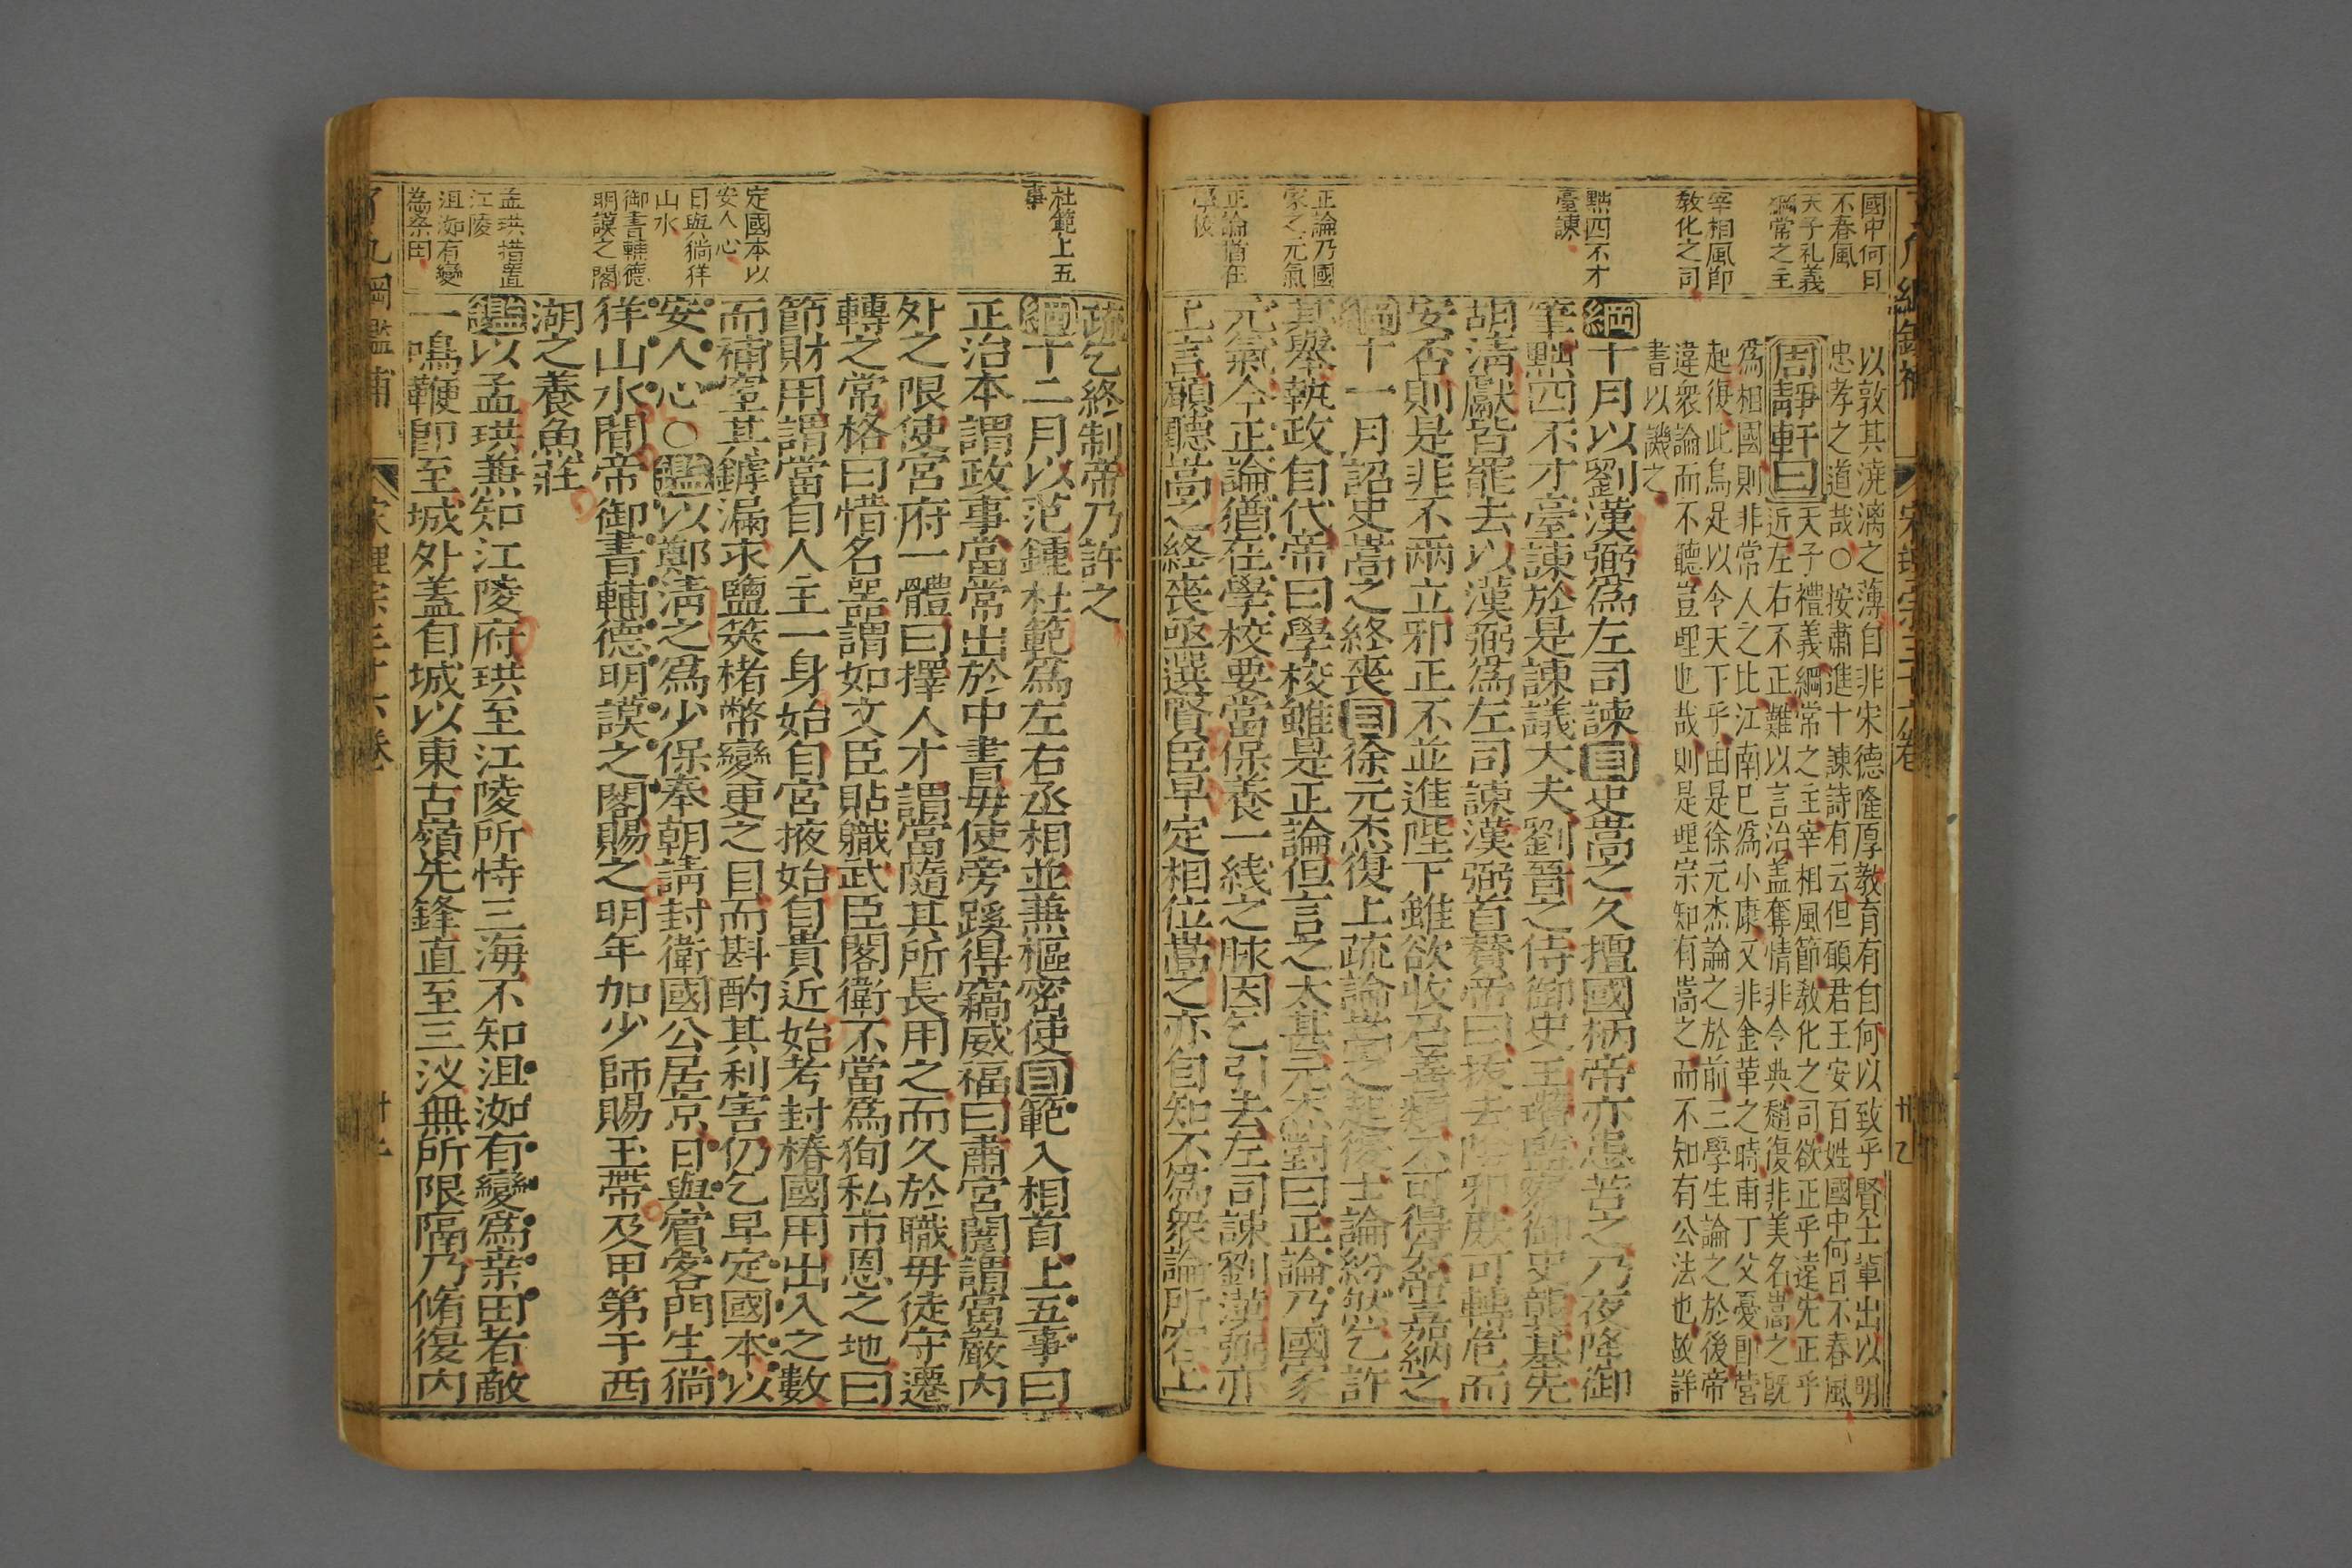 國中何日
不春風
天子礼義
綱常之主
宰相風節
教化之司
點四不才
臺諫
正論乃國
家之元氣
正論猶在
學校
以敦其澆漓之薄自非宋德隆厚教育有自何以致乎賢士輩出以明
忠孝之道哉○按肅進十諫詩有云但願君王安百姓國中何日不春風
周靜軒曰天子禮義綱常之主宰相風節教化之司欲正乎遠先正乎
近左右不正難以言治蓋奪情非令典起復非美名嵩之既
為相國則非常人之比江南已為小康又非金革之時甫丁父憂即營
起復此烏足以令天下乎由是徐元杰論之於前三學生論之於後帝
違衆論而不聽豈理也哉則是理宗知有嵩之而不知有公法也故詳
書以譏之
綱十月以劉漢弼為左司諫目史嵩之久擅國柄帝亦患苦之乃夜降御
筆點四不才臺諫於是諫議大夫劉晉之侍御史王瓚監察御史龔基先
胡清獻皆罷去以漢弼為左司諫漢弼首贊帝曰拔去陰邪庶可轉危而
安否則是非不兩立邪正不並進陛下雖欲收召善類不可得矣帝嘉納之
綱十一月詔史嵩之終喪目徐元杰復上疏論嵩之起復士論紛然乞許
其舉執政自代帝曰學校雖是正論但言之太甚元杰對曰正論乃國家
元氣今正論猶在學校要當保養一綫之脉因乞引去左司諫劉漢弼亦
上言願聽嵩之終喪亟選賢臣早定相位嵩之亦自知不為衆論所容上
杜範上五
事
定國本以
安人心
日與徜徉
山水
御書輔德
明謨之閣
孟珙措置
江陵
沮洳有變
為桑田
疏乞終制帝乃許之
綱十二月以范鍾杜範為左右丞相並兼樞密使目範入相首上五事曰
正治本謂政事當常出於中書毋使旁蹊得竊威福曰肅宮闈謂當嚴內
外之限使宮府一體曰擇人才謂當隨其所長用之而久於職毋徒守遷
轉之常格曰惜名器謂如文臣貼職武臣閣衛不當為狥私市恩之地曰
節財用謂當自人主一身始自宮掖始自貴近始考封樁國用出入之數
而補窒其罅漏求鹽筴楮幣變更之目而斟酌其利害仍乞早定國本以
安人心○鑑以鄭清之為少保奉朝請封衛國公居京日與賓客門生徜
徉山水間帝御書輔德明謨之閣賜之明年加少師賜玉帶及甲第于西
湖之養魚莊
鑑以孟珙兼知江陵府珙至江陵所恃三海不知沮洳有變為桑田者敵
一鳴鞭即至城外蓋自城以東古嶺先鋒直至三汊無所限隔乃脩復內